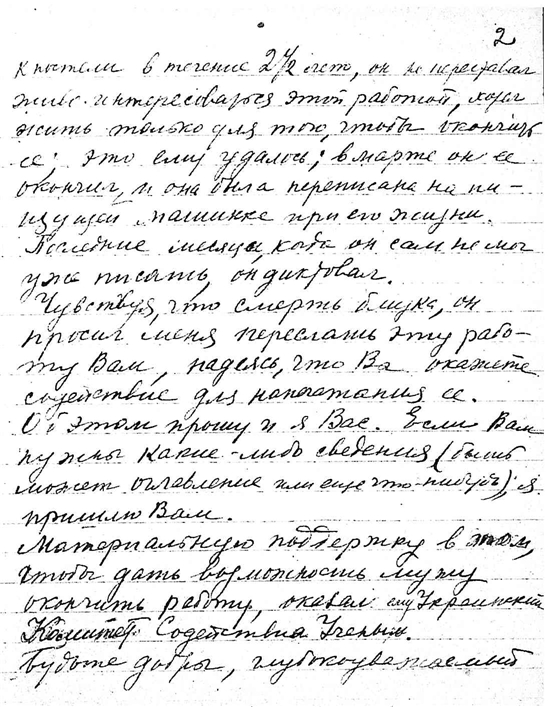 2
к постели в течение 2 1/2 лет, он не переставал
живо интересоваться этой работой, хотел
жить только для того, чтобы окончить
ее; это ему удалось; в марте он ее
окончил, и она была переписана на пи-
шущей машинке при его жизни.
Последние месяцы, когда он сам не мог
уже писать, он диктовал.
Чувствуя, что смерть близка, он
просил меня переслать эту рабо-
ту Вам, надеясь, что Вы окажете
содействие для напечатания ее.
Об этом прошу и я Вас. Если Вам
нужны какие-либо сведения (быть
может оглавление или еще что-нибудь), я
пришлю Вам.
Материальную поддержку в том,
чтобы дать возможность мужу
окончить работу, оказал ему Украинский
Комитет Содействия Ученым.
Будьте добры, глубокоуважаемый